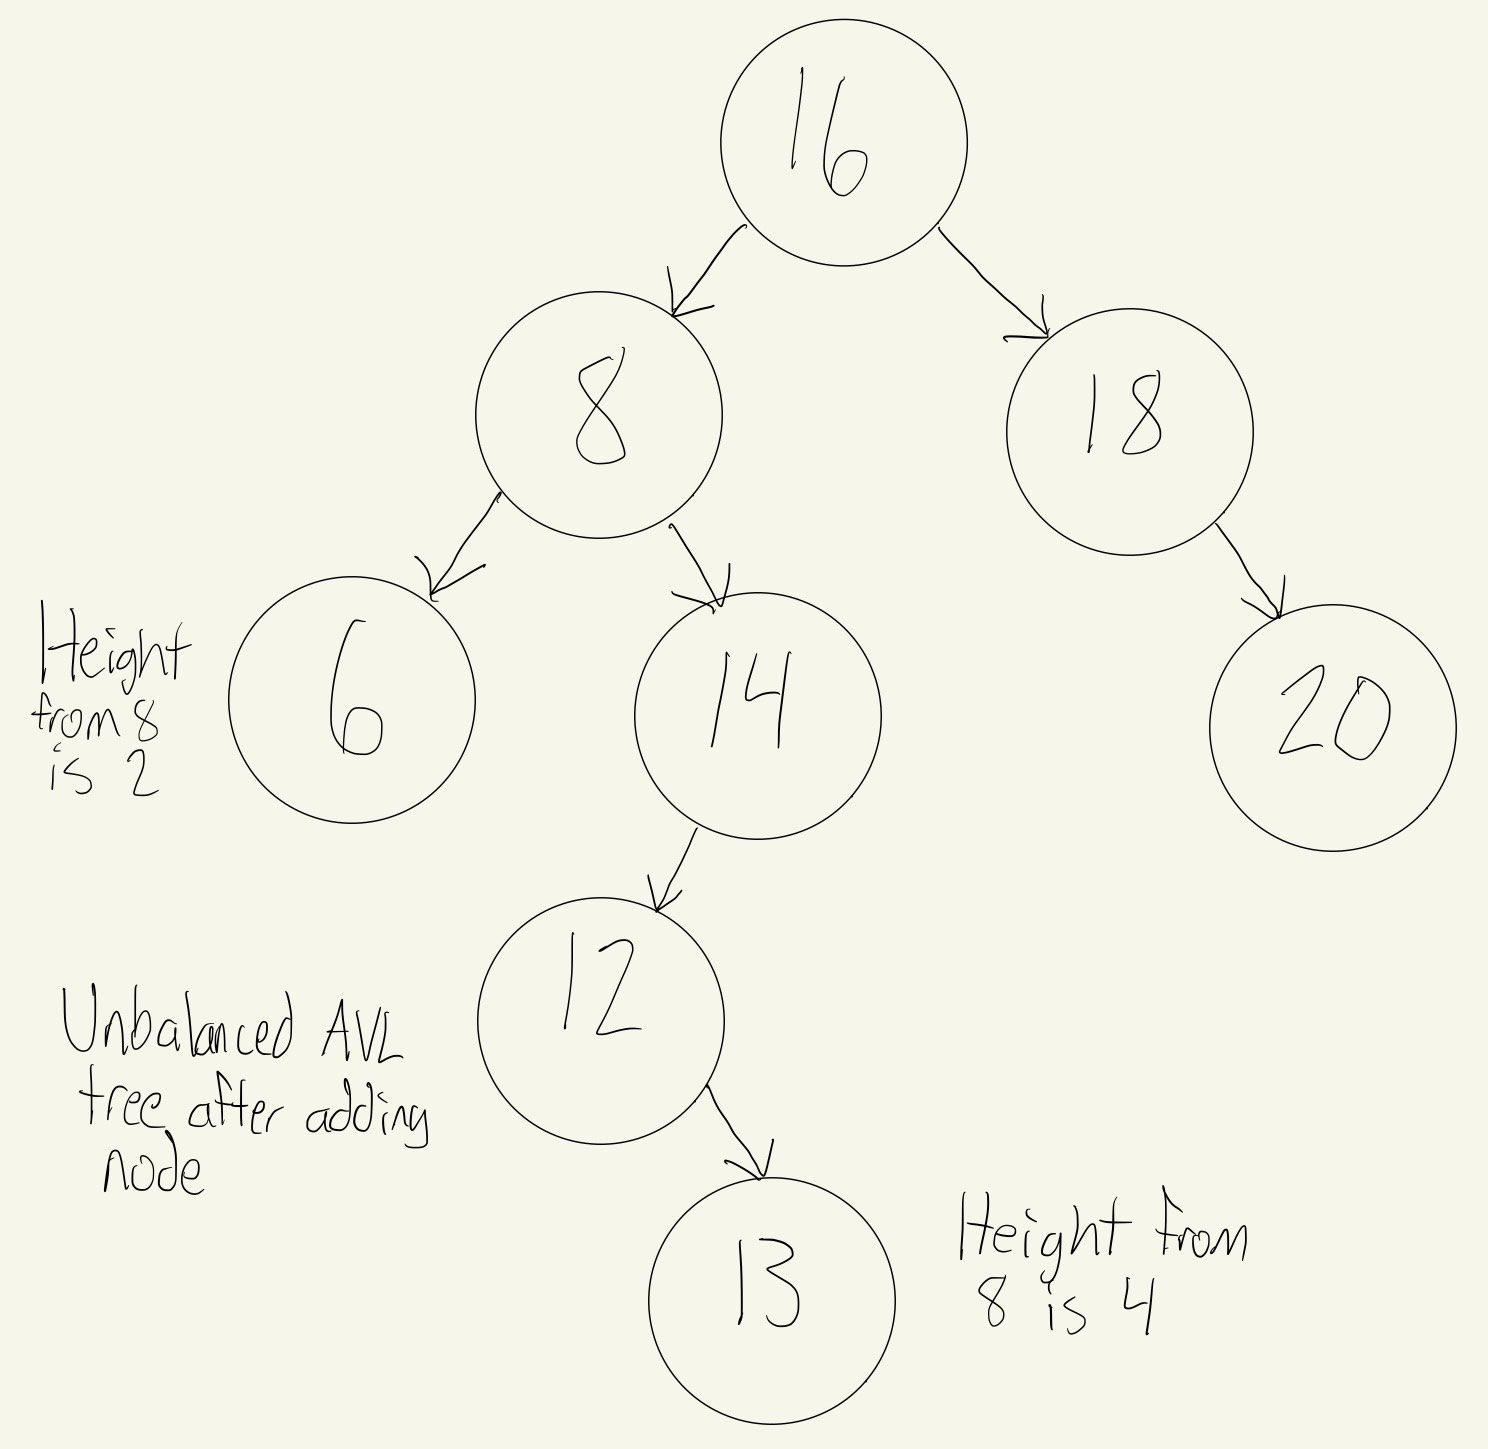 16
8
18
6
14
20
Height
from 8
is 2
12
Unbalanced AVL
tree after adding
node
13
Height from
8 is 4